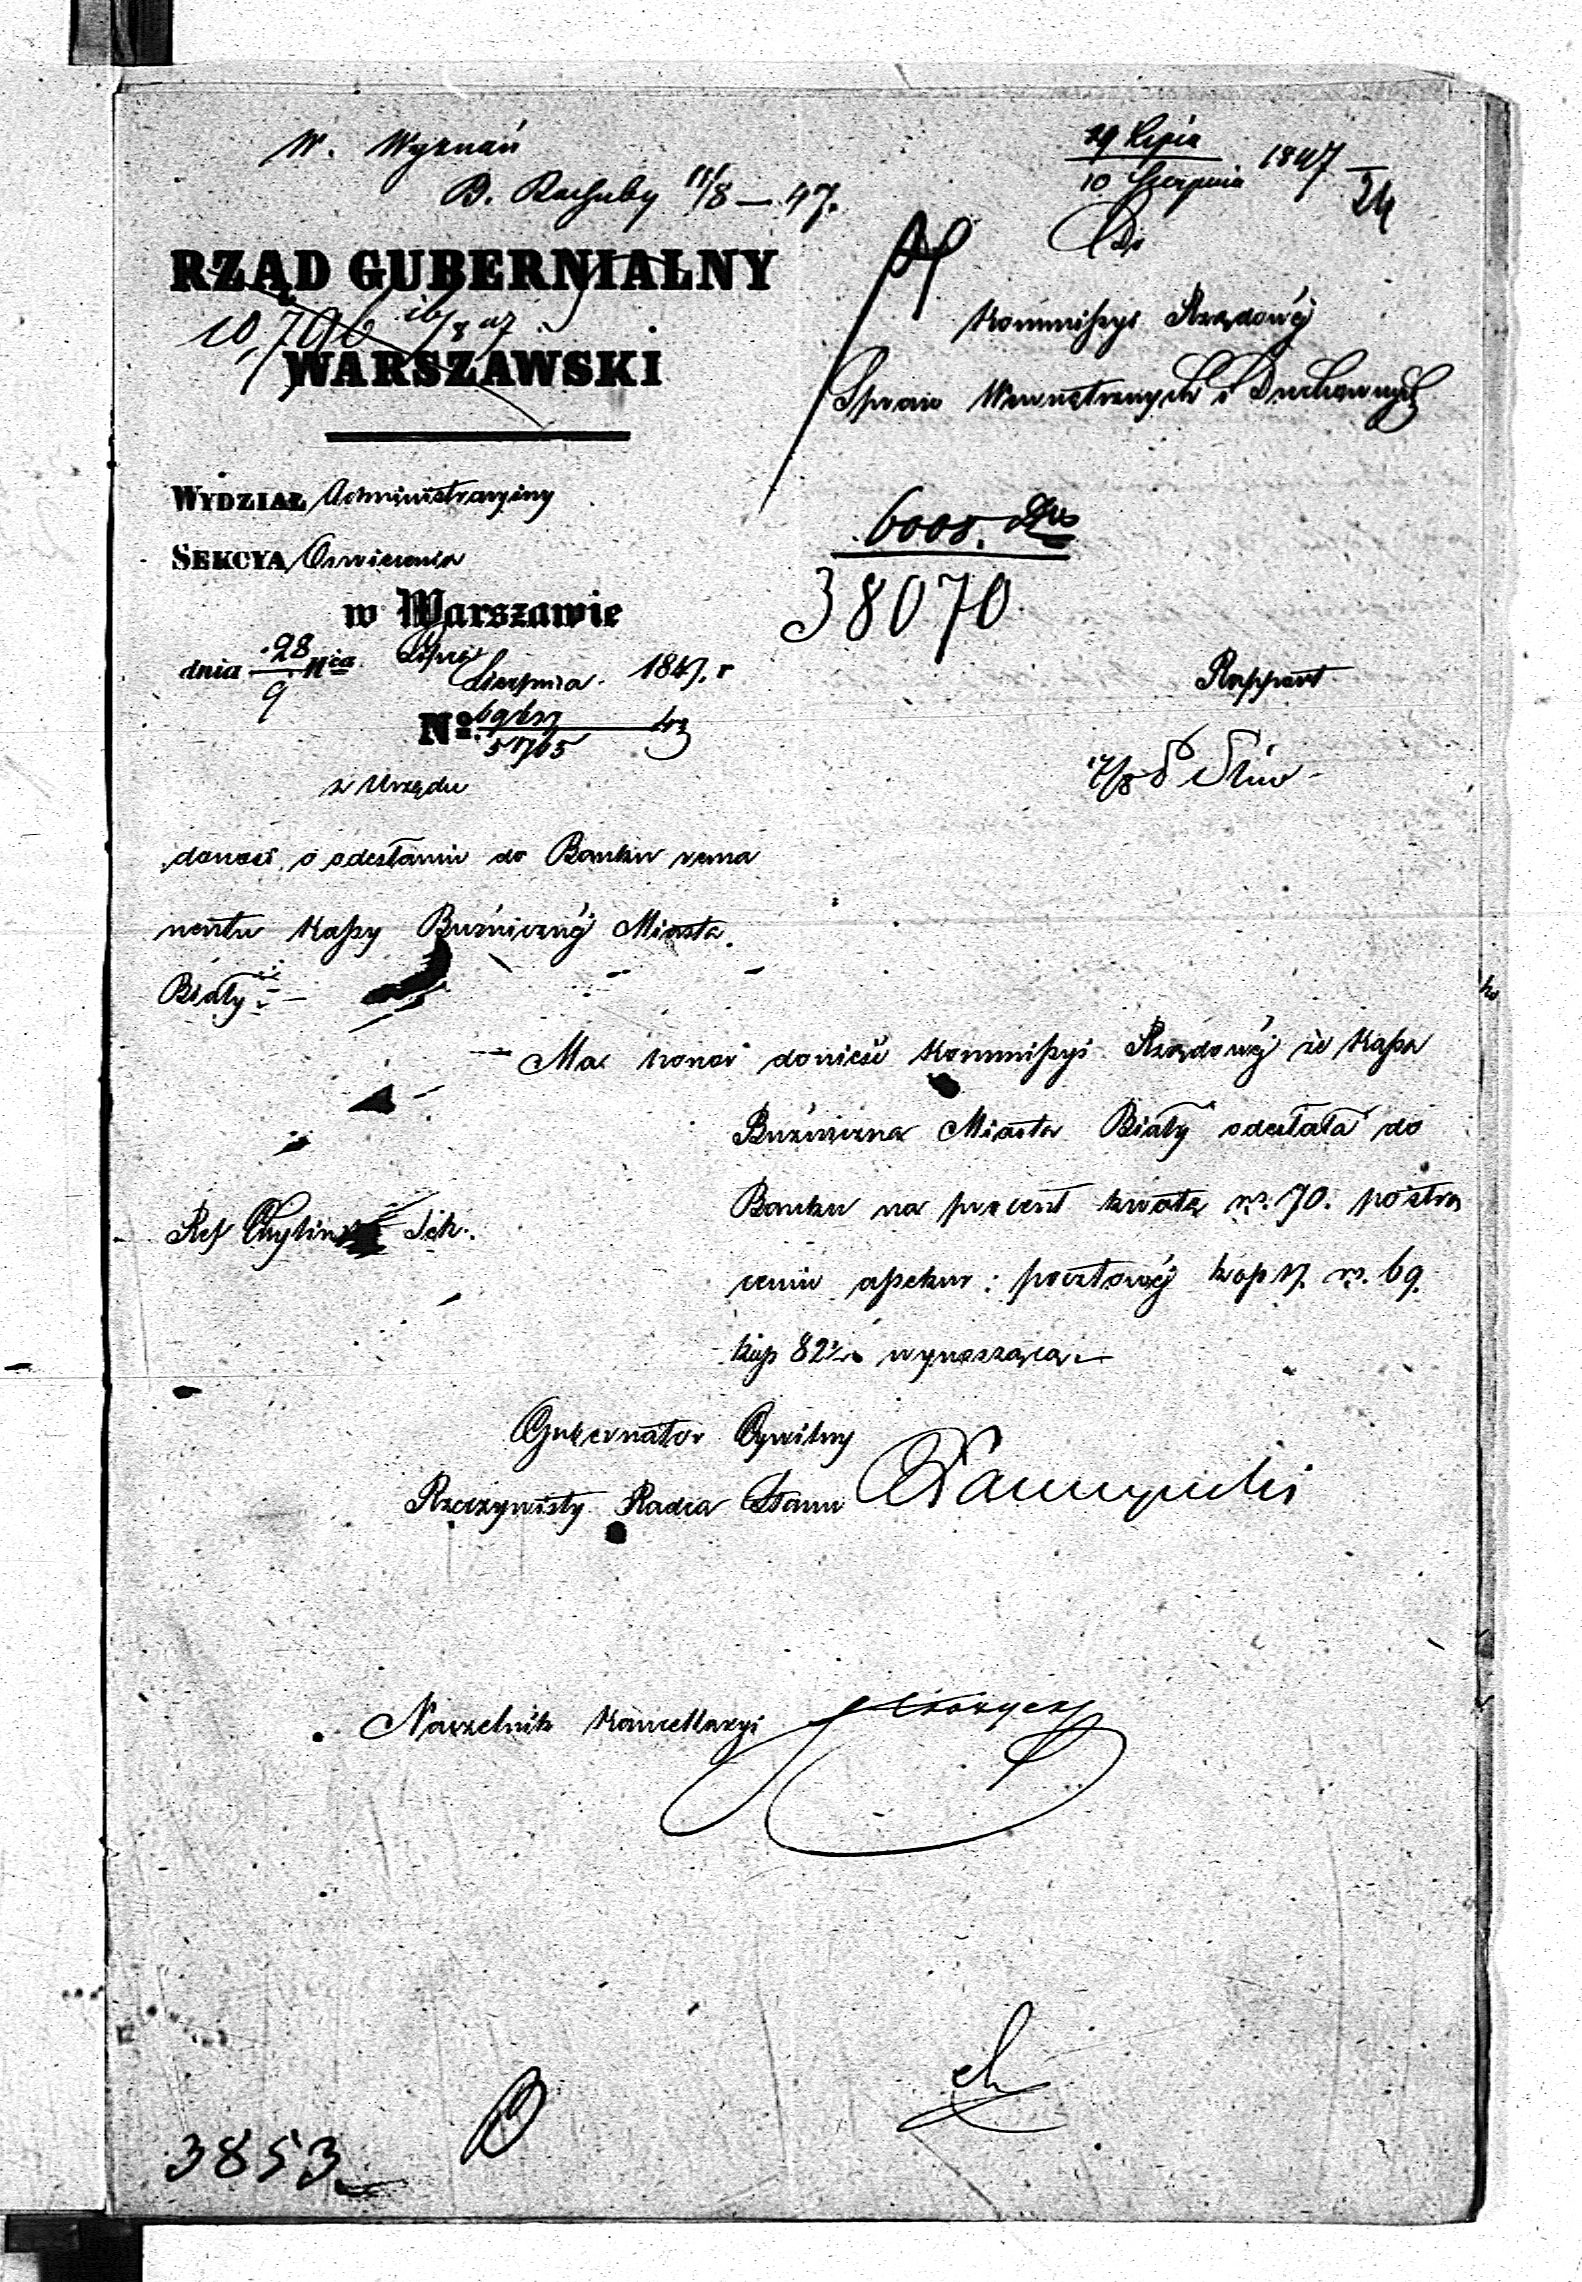 W. Wyznań
B. Rachuby 11/8 — 47.
29 Lipca
10 Sierpnia 1847
24
Do
RZĄD GUBERNIALNY
10,796 16/8 47
WARSZAWSKI
Kommissyi Rządowéj
Spraw Wewnętrznych i Duchownych
WYDZIAŁ Administracyiny
SEKCYA Oswiecenia
6005.
38070
w Warszawie
dnia 28 Lipca
9 Sierpnia 1847. r
Rapport
No.
5705
z Urzędu
17/8
donosi o odesłaniu do Banku rema
nentu Kassy Buźnicznéj Miasta
Biały
— Ma honor donieść Kommissyi Rządowéj że Kassa
Buźniczna Miasta Biały odesłała do
Banku na procent kwotę rs. 70. po strą
Ref Chyliński Sek.
ceniu assekur: pocztowéj kop 17. rs. 69.
kop 82½ wynoszącą.—
Gubernator Cywilny
Rzeczywisty Radca Stanu
Naczelnik Kancellaryi
3853